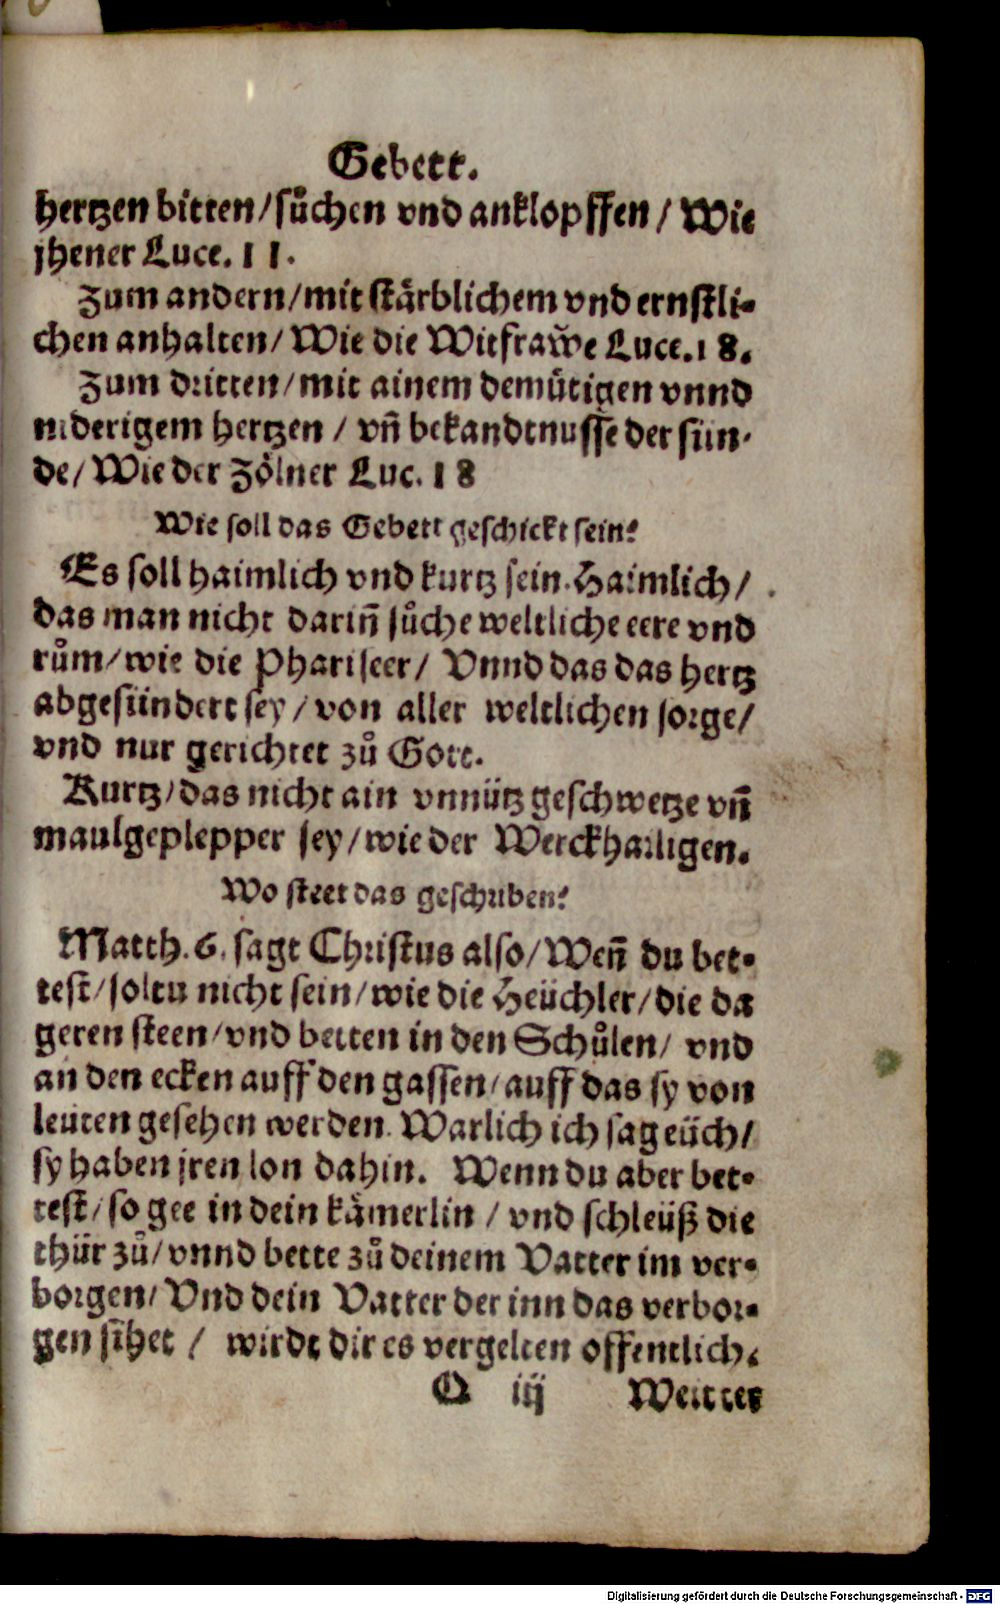 Gebett.
hertzen bitten/sůchen vnd anklopffen/ Wie
jhener Luce. 11.
Zum andern/mit stärblichem vnd ernstli-
chen anhalten/ Wie die Witfraw̌e Luce.18.
Zum dritten/mit ainem demütigen vnnd
niderigem hertzen / vn̄ bekandtnusse der sün-
de/ Wie der Zölner Luc. 18
Wie soll das Gebett geschickt sein?
Es soll haimlich vnd kurtz sein. Haimlich/
das man nicht darin̄ sůche weltliche eere vnd
rům/wie die Phariseer/ Vnnd das das hertz
abgesündert sey / von aller weltlichen sorge/
vnd nur gerichtet zů Gott.
Kurtz/das nicht ain vnnütz geschwetze vn̄
maulgeplepper sey/wie der Werckhailigen.
Wo steet das geschriben?
Matth. 6. sagt Christus also/ Wen̄ du bet-
test/soltu nicht sein/wie die Heüchler/die da
geren steen/vnd betten in den Schůlen/ vnd
an den ecken auff den gassen/auff das sy von
leüten gesehen werden. Warlich ich sag eüch/
sy haben jren lon dahin. Wenn du aber bet-
test/so gee in dein kämerlin / vnd schleüß die
thür zů/vnnd bette zů deinem Vatter im ver-
borgen/ Vnd dein Vatter der inn das verbor-
gen sihet / wirdt dir es vergelten offentlich.
Q iij Weittes
Digitalisierung gefördert durch die Deutsche Forschungsgemeinschaft - DFG